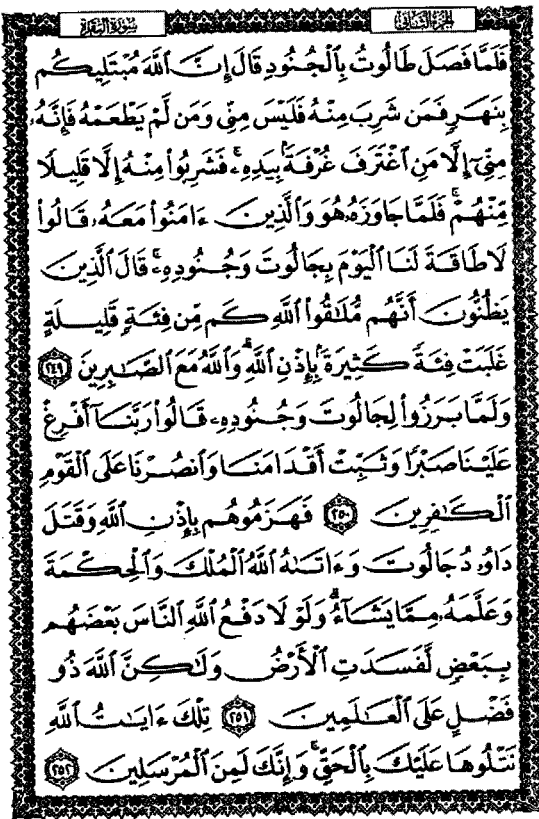 سورة البقرة
الجزء الثاني
فَلَمَّا فَصَلَ طَالُوتُ بِٱلْجُنُودِ قَالَ إِنَّ ٱللَّهَ مُبْتَلِيكُم
بِنَهَرٍ فَمَن شَرِبَ مِنْهُ فَلَيْسَ مِنِّي وَمَن لَّمْ يَطْعَمْهُ فَإِنَّهُۥ
مِنِّيٓ إِلَّا مَنِ ٱغْتَرَفَ غُرْفَةًۢ بِيَدِهِۦۚ فَشَرِبُوا۟ مِنْهُ إِلَّا قَلِيلًا
مِّنْهُمْۚ فَلَمَّا جَاوَزَهُۥ هُوَ وَٱلَّذِينَ ءَامَنُوا۟ مَعَهُۥ قَالُوا۟
لَا طَاقَةَ لَنَا ٱلْيَوْمَ بِجَالُوتَ وَجُنُودِهِۦۚ قَالَ ٱلَّذِينَ
يَظُنُّونَ أَنَّهُم مُّلَٰقُوا۟ ٱللَّهِ كَم مِّن فِئَةٍ قَلِيلَةٍ
غَلَبَتْ فِئَةً كَثِيرَةًۢ بِإِذْنِ ٱللَّهِۗ وَٱللَّهُ مَعَ ٱلصَّٰبِرِينَ ٢٤٩
وَلَمَّا بَرَزُوا۟ لِجَالُوتَ وَجُنُودِهِۦ قَالُوا۟ رَبَّنَآ أَفْرِغْ
عَلَيْنَا صَبْرًا وَثَبِّتْ أَقْدَامَنَا وَٱنصُرْنَا عَلَى ٱلْقَوْمِ
ٱلْكَٰفِرِينَ ٢٥٠ فَهَزَمُوهُم بِإِذْنِ ٱللَّهِ وَقَتَلَ
دَاوُۥدُ جَالُوتَ وَءَاتَىٰهُ ٱللَّهُ ٱلْمُلْكَ وَٱلْحِكْمَةَ
وَعَلَّمَهُۥ مِمَّا يَشَآءُۗ وَلَوْلَا دَفْعُ ٱللَّهِ ٱلنَّاسَ بَعْضَهُم
بِبَعْضٍ لَّفَسَدَتِ ٱلْأَرْضُ وَلَٰكِنَّ ٱللَّهَ ذُو
فَضْلٍ عَلَى ٱلْعَٰلَمِينَ ٢٥١ تِلْكَ ءَايَٰتُ ٱللَّهِ
نَتْلُوهَا عَلَيْكَ بِٱلْحَقِّۚ وَإِنَّكَ لَمِنَ ٱلْمُرْسَلِينَ ٢٥٢